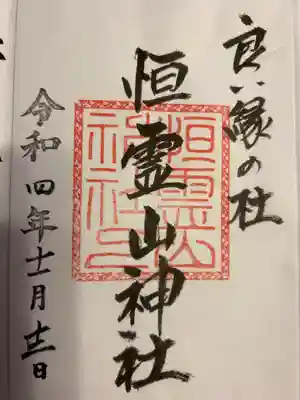 良い縁の社
恒霊山神社
恒霊山
神社之印
令和四年十一月十三日